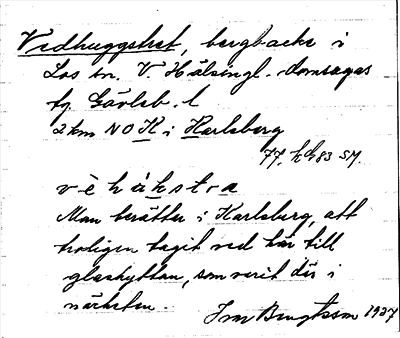 Vedhuggstret, bergbacke i
Los sn. V. Hälsingl. domsagas
tg Gävleb. l
2 km NO K i Karlsberg
77. h G 83 SM.
v è h ú k s t r a
Man berättar i Karlsberg, att
troligen tagit ved här till
glashyttan, som varit där i
närheten.
Im Bengtsson 1937